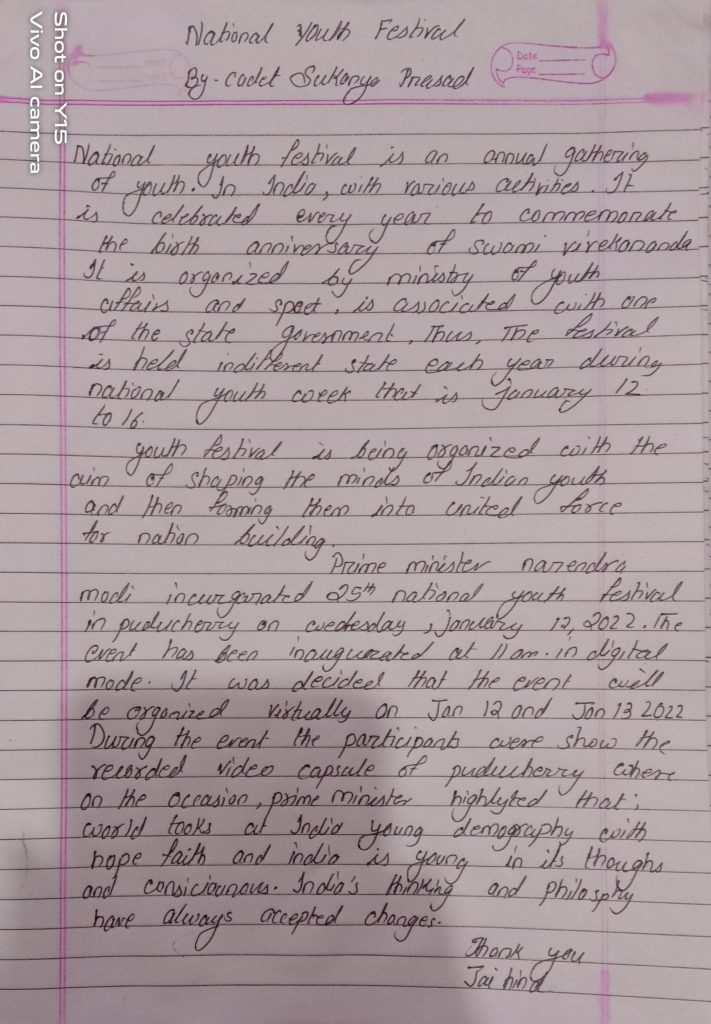 Shot on Y15
Vivo AI camera
National youth Festival
By - cadet Sukanya Prasad
Date
Page
National youth festival is an annual gathering
of youth. In India, with various activities. It
is celebrated every year to commemorate
the birth anniversary of swami virekananda
It is organized by ministry of youth
affairs and spoet. is associated with one
of the state government, Thus, The festival
is held indifferent state each year during
national youth week that is January 12
to 16.
youth festival is being organized with the
aim of shaping the minds of Indian youth
and then forming them into united force
for nation building.
Prime minister narendra
modi incurgarated 25th national youth festival
in puducherry on wedesday, January 12, 2022. The
event has been inaugurated at 11 am. in digital
mode. It was decided that the event will
be organized virtually on Jan 12 and Jan 13 2022
During the event the participants were show the
recorded video capsule of puducherry where
on the occasion, prime minister highlyted that;
world tooks at India young demography with
hope faith and india is young in its thoughs
and consiciounous. India's thinking and philosphy
have always accepted changes.
Thank you
Jai hind